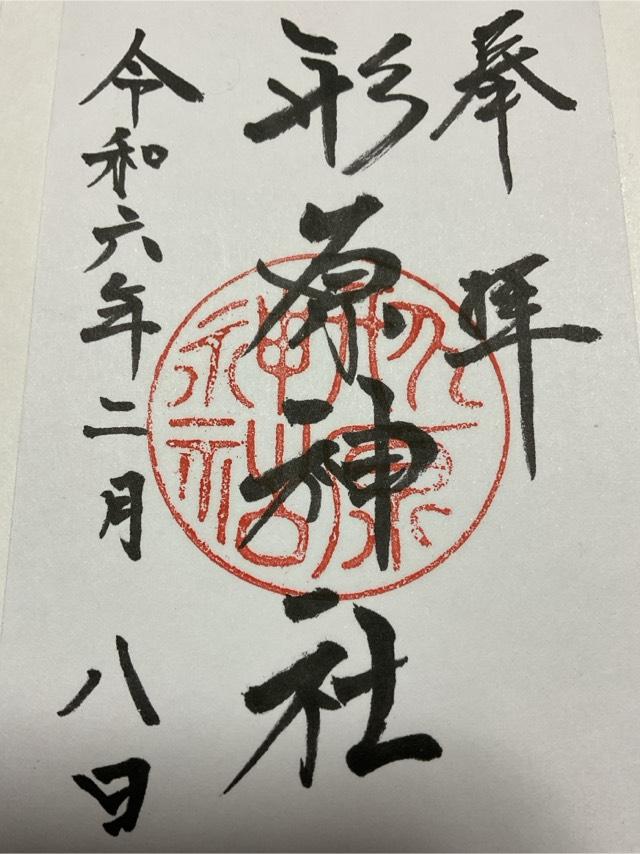 奉拝
形原神社
令和六年二月八日